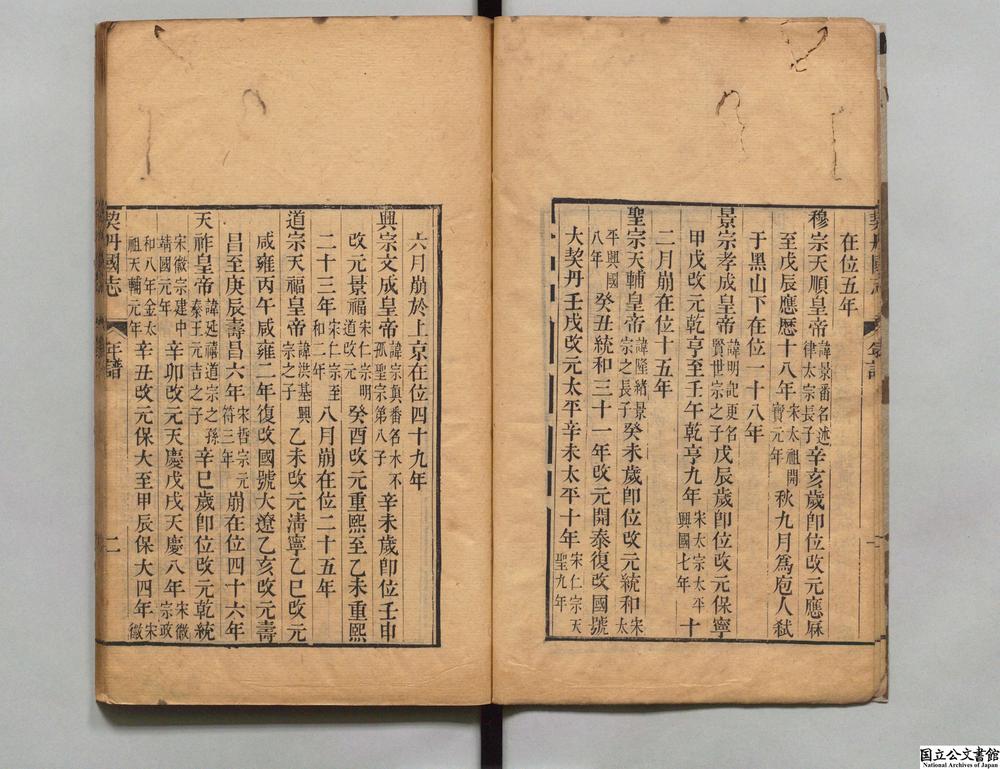 在位五年
穆宗天順皇帝諱景番名述律太宗長子辛亥歲卽位改元應厤
至戊辰應歷十八年宋太祖開寳元年秋九月爲庖人弑
于黑山下在位一十八年
景宗孝成皇帝諱明記更名賢世宗之子戊辰歲卽位改元保寧
甲戌改元乾亨至壬午乾亨九年宋太宗太平興國七年十
二月崩在位十五年
聖宗天輔皇帝諱隆緒景宗之長子癸未歲卽位改元統和宋太
平興國八年癸丑統和三十一年改元開泰復改國號
大契丹壬戌改元太平辛未太平十年宋仁宗天聖九年
六月崩於上京在位四十九年
興宗文成皇帝諱宗眞番名木不孤聖宗第八子辛未歲卽位壬申
改元景福宋仁宗明道改元癸酉改元重熙至乙未重熙
二十三年宋仁宗至和二年八月崩在位二十五年
道宗天福皇帝諱洪基興宗之子乙未改元淸寧乙巳改元
咸雍丙午咸雍二年復改國號大遼乙亥改元壽
昌至庚辰壽昌六年宋哲宗元符三年崩在位四十六年
天祚皇帝諱延禧道宗之孫秦王元吉之子辛巳歲卽位改元乾統
宋徽宗建中靖國元年辛卯改元天慶戊戌天慶八年宋徽宗政
和八年金太祖天輔元年辛丑改元保大至甲辰保大四年宋徽
契丹國志
年譜
二
国立公文書館
National Archives of Japan